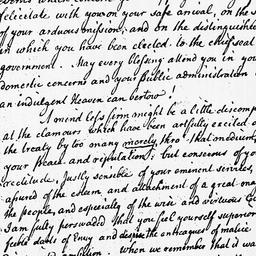 felicitate with you on your safe arrival, on the
of your arduous mission, and on the distinguished
in which you have been elected to the chief seat
government. May every blessing attend you in you
domestic concerns and your Public administration
an indulgent Heaven can bestow!
A mind less firm might be a little discomp
at the clamours which have been artfully excited a
the treaty by too many merely thro' that medium,
your Peace and reputation; but conscious of yo
rectitude, Justly sensible of your eminent services,
assured of the esteem and attachment of a great ma
the people, and especially of the wise and virtuous
I am fully perswaded that you feel yourself superior
feeble darts of Envy and despise the intrigues of malice
when we remember that it wa